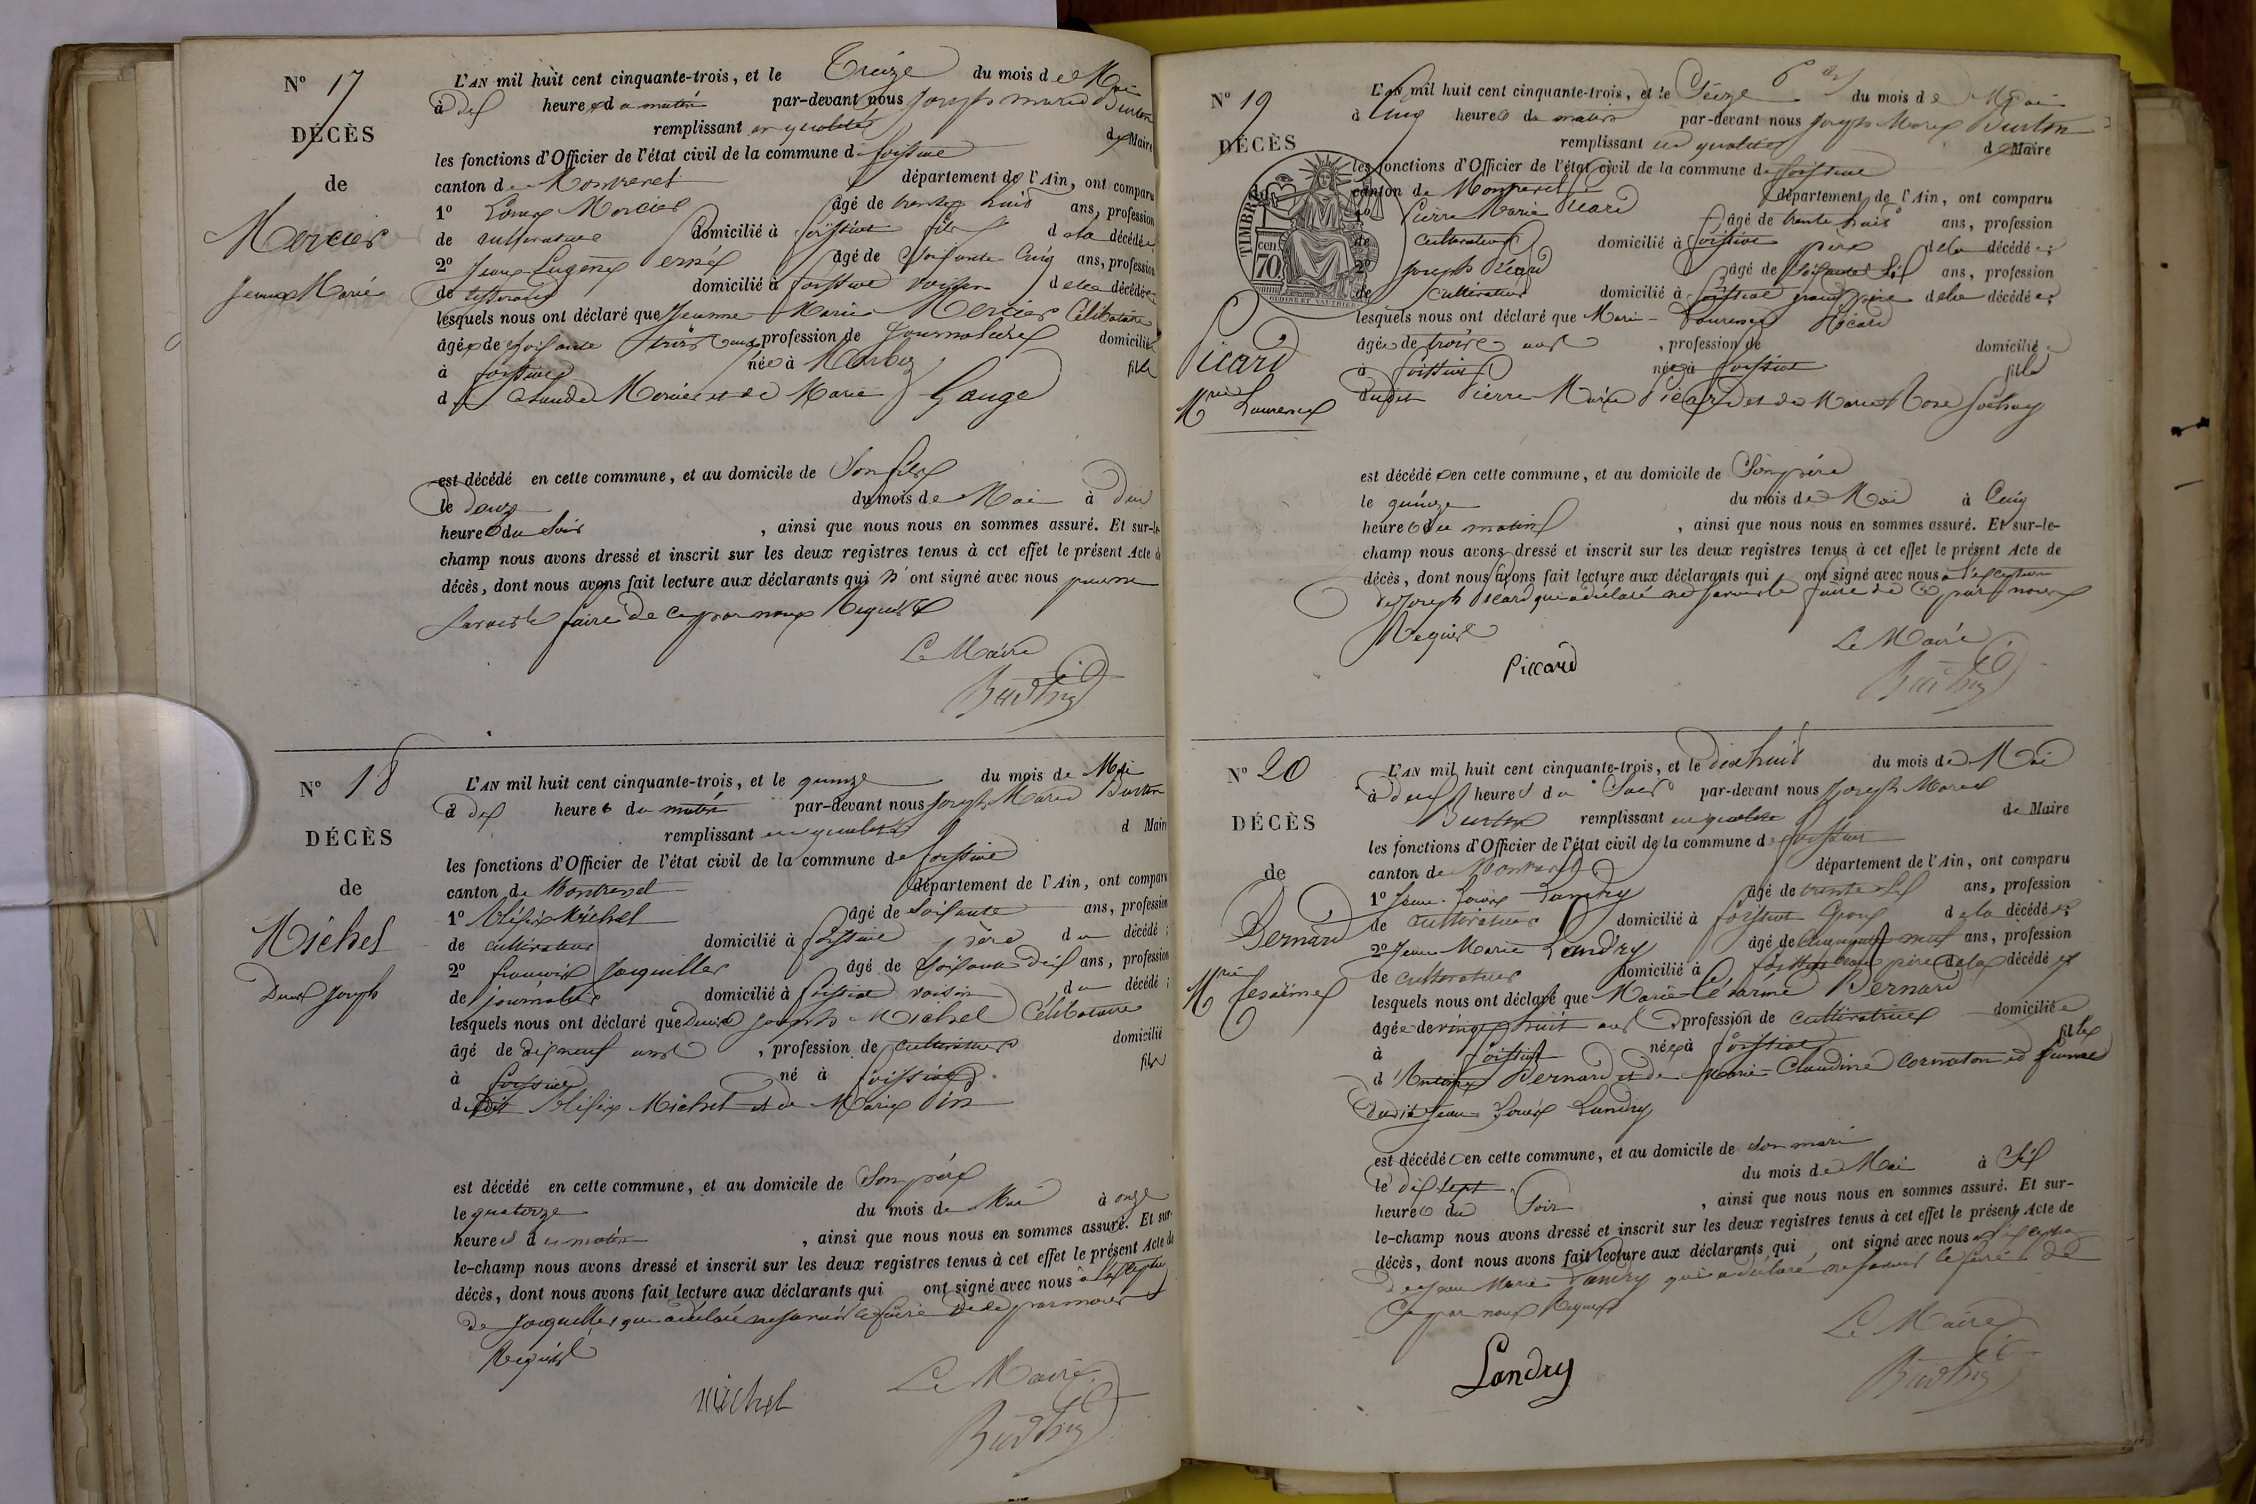 N° 17
DÉCÈS
de
Mercier
Jeanne Marie
L'AN mil huit cent cinquante-trois, et le Treize du mois de Mai
à dix heures du matin par-devant nous Joseph Marie Burtin
remplissant en qualité de Maire
les fonctions d'Officier de l'état civil de la commune de Foissiat
canton de Montrevel département de l'Ain, ont comparu
1° Louis Mercier âgé de trente huit ans, profession
de cultivateur domicilié à Foissiat fils de la décédée;
2° Jean Eugène âgé de Soixante Cinq ans, profession
de domicilié à Foissiat voisin de la décédée;
lesquels nous ont déclaré que Jeanne Marie Mercier Célibataire
âgée de soixante trois ans profession de Journalière domiciliée
à Foissiat née à Marboz fille
de Claude Mercier et de Marie Gauge
est décédé en cette commune, et au domicile de Son fils
le douze du mois de Mai à
heures du soir , ainsi que nous nous en sommes assuré. Et sur-le-
champ nous avons dressé et inscrit sur les deux registres tenus à cet effet le présent Acte de
décès, dont nous avons fait lecture aux déclarants qui n'ont signé avec nous pour ne
savoir le faire de ce par nous Requis
Le Maire
Burtin
N° 18
DÉCÈS
de
Michel
Denis Joseph
L'AN mil huit cent cinquante-trois, et le quinze du mois de Mai
à dix heures du matin par-devant nous Joseph Marie Burtin
remplissant en qualité d Maire
les fonctions d'Officier de l'état civil de la commune de Foissiat
canton de Montrevel département de l'Ain, ont comparu
1° Michel âgé de Soixante ans, profession
de cultivateur domicilié à Foissiat père du décédé;
2° François Jacquiller âgé de Soixante Dix ans, profession
de journalier domicilié à Foissiat voisin du décédé;
lesquels nous ont déclaré que Denis Joseph Michel Célibataire
âgé de dix neuf ans , profession de cultivateur domicilié
à Foissiat né à Foissiat fils
dudit Michel et de Marie Pin
est décédé en cette commune, et au domicile de Son père
le quatorze du mois de Mai à onze
heures du matin , ainsi que nous nous en sommes assuré. Et sur-
le-champ nous avons dressé et inscrit sur les deux registres tenus à cet effet le présent Acte de
décès, dont nous avons fait lecture aux déclarants qui ont signé avec nous à l'exception
de Jacquiller qui a déclaré ne savoir le faire de ce par nous
Requis
Michel
Le Maire
Burtin
N° 19
DÉCÈS
de
TIMBRE
cen.
70
Picard
Mrie Laurence
L'AN mil huit cent cinquante-trois, et le Seize du mois de Mai
à Cinq heures du matin par-devant nous Joseph Marie Burtin
remplissant en qualité de Maire
les fonctions d'Officier de l'état civil de la commune de Foissiat
canton de Montrevel département de l'Ain, ont comparu
1° Pierre Marie Picard âgé de trente huit ans, profession
de cultivateur domicilié à Foissiat père de la décédée;
2° Joseph Picard âgé de Soixante Six ans, profession
de cultivateur domicilié à Foissiat grand père de la décédée;
lesquels nous ont déclaré que Marie Laurence Picard
âgée de treize ans , profession de domiciliée
à Foissiat née à Foissiat fille
dudit Pierre Marie Picard et de Marie Rose
est décédée en cette commune, et au domicile de Son père
le quinze du mois de Mai à Cinq
heures du matin , ainsi que nous nous en sommes assuré. Et sur-le-
champ nous avons dressé et inscrit sur les deux registres tenus à cet effet le présent Acte de
décès, dont nous avons fait lecture aux déclarants qui ont signé avec nous à l'exception
de Joseph Picard qui a déclaré ne savoir le faire de ce par nous
Requis
Piccard
Le Maire
Burtin
N° 20
DÉCÈS
de
Bernard
Mrie Césarine
L'AN mil huit cent cinquante-trois, et le dix huit du mois de Mai
à deux heures du Soir par-devant nous Joseph Marie
Burtin remplissant en qualité de Maire
les fonctions d'Officier de l'état civil de la commune de Foissiat
canton de Montrevel département de l'Ain, ont comparu
1° Jean Louis Landry âgé de trente six ans, profession
de cultivateur domicilié à Foissiat Epoux de la décédée;
2° Jean Marie Landry âgé de Cinquante neuf ans, profession
de cultivateur domicilié à Foissiat beau père de la décédée
lesquels nous ont déclaré que Marie Césarine Bernard
âgée de vingt huit ans profession de cultivatrice domiciliée
à Foissiat née à Foissiat fille
d'Antoine Bernard et de Marie Claudine Cornaton et femme
dudit Jean Louis Landry
est décédée en cette commune, et au domicile de son mari
le dix sept du mois de Mai à Six
heures du Soir , ainsi que nous nous en sommes assuré. Et sur-
le-champ nous avons dressé et inscrit sur les deux registres tenus à cet effet le présent Acte de
décès, dont nous avons fait lecture aux déclarants qui ont signé avec nous à l'exception
de Jean Marie Landry qui a déclaré ne savoir le faire de
Ce par nous Requis
Landry
Le Maire
Burtin